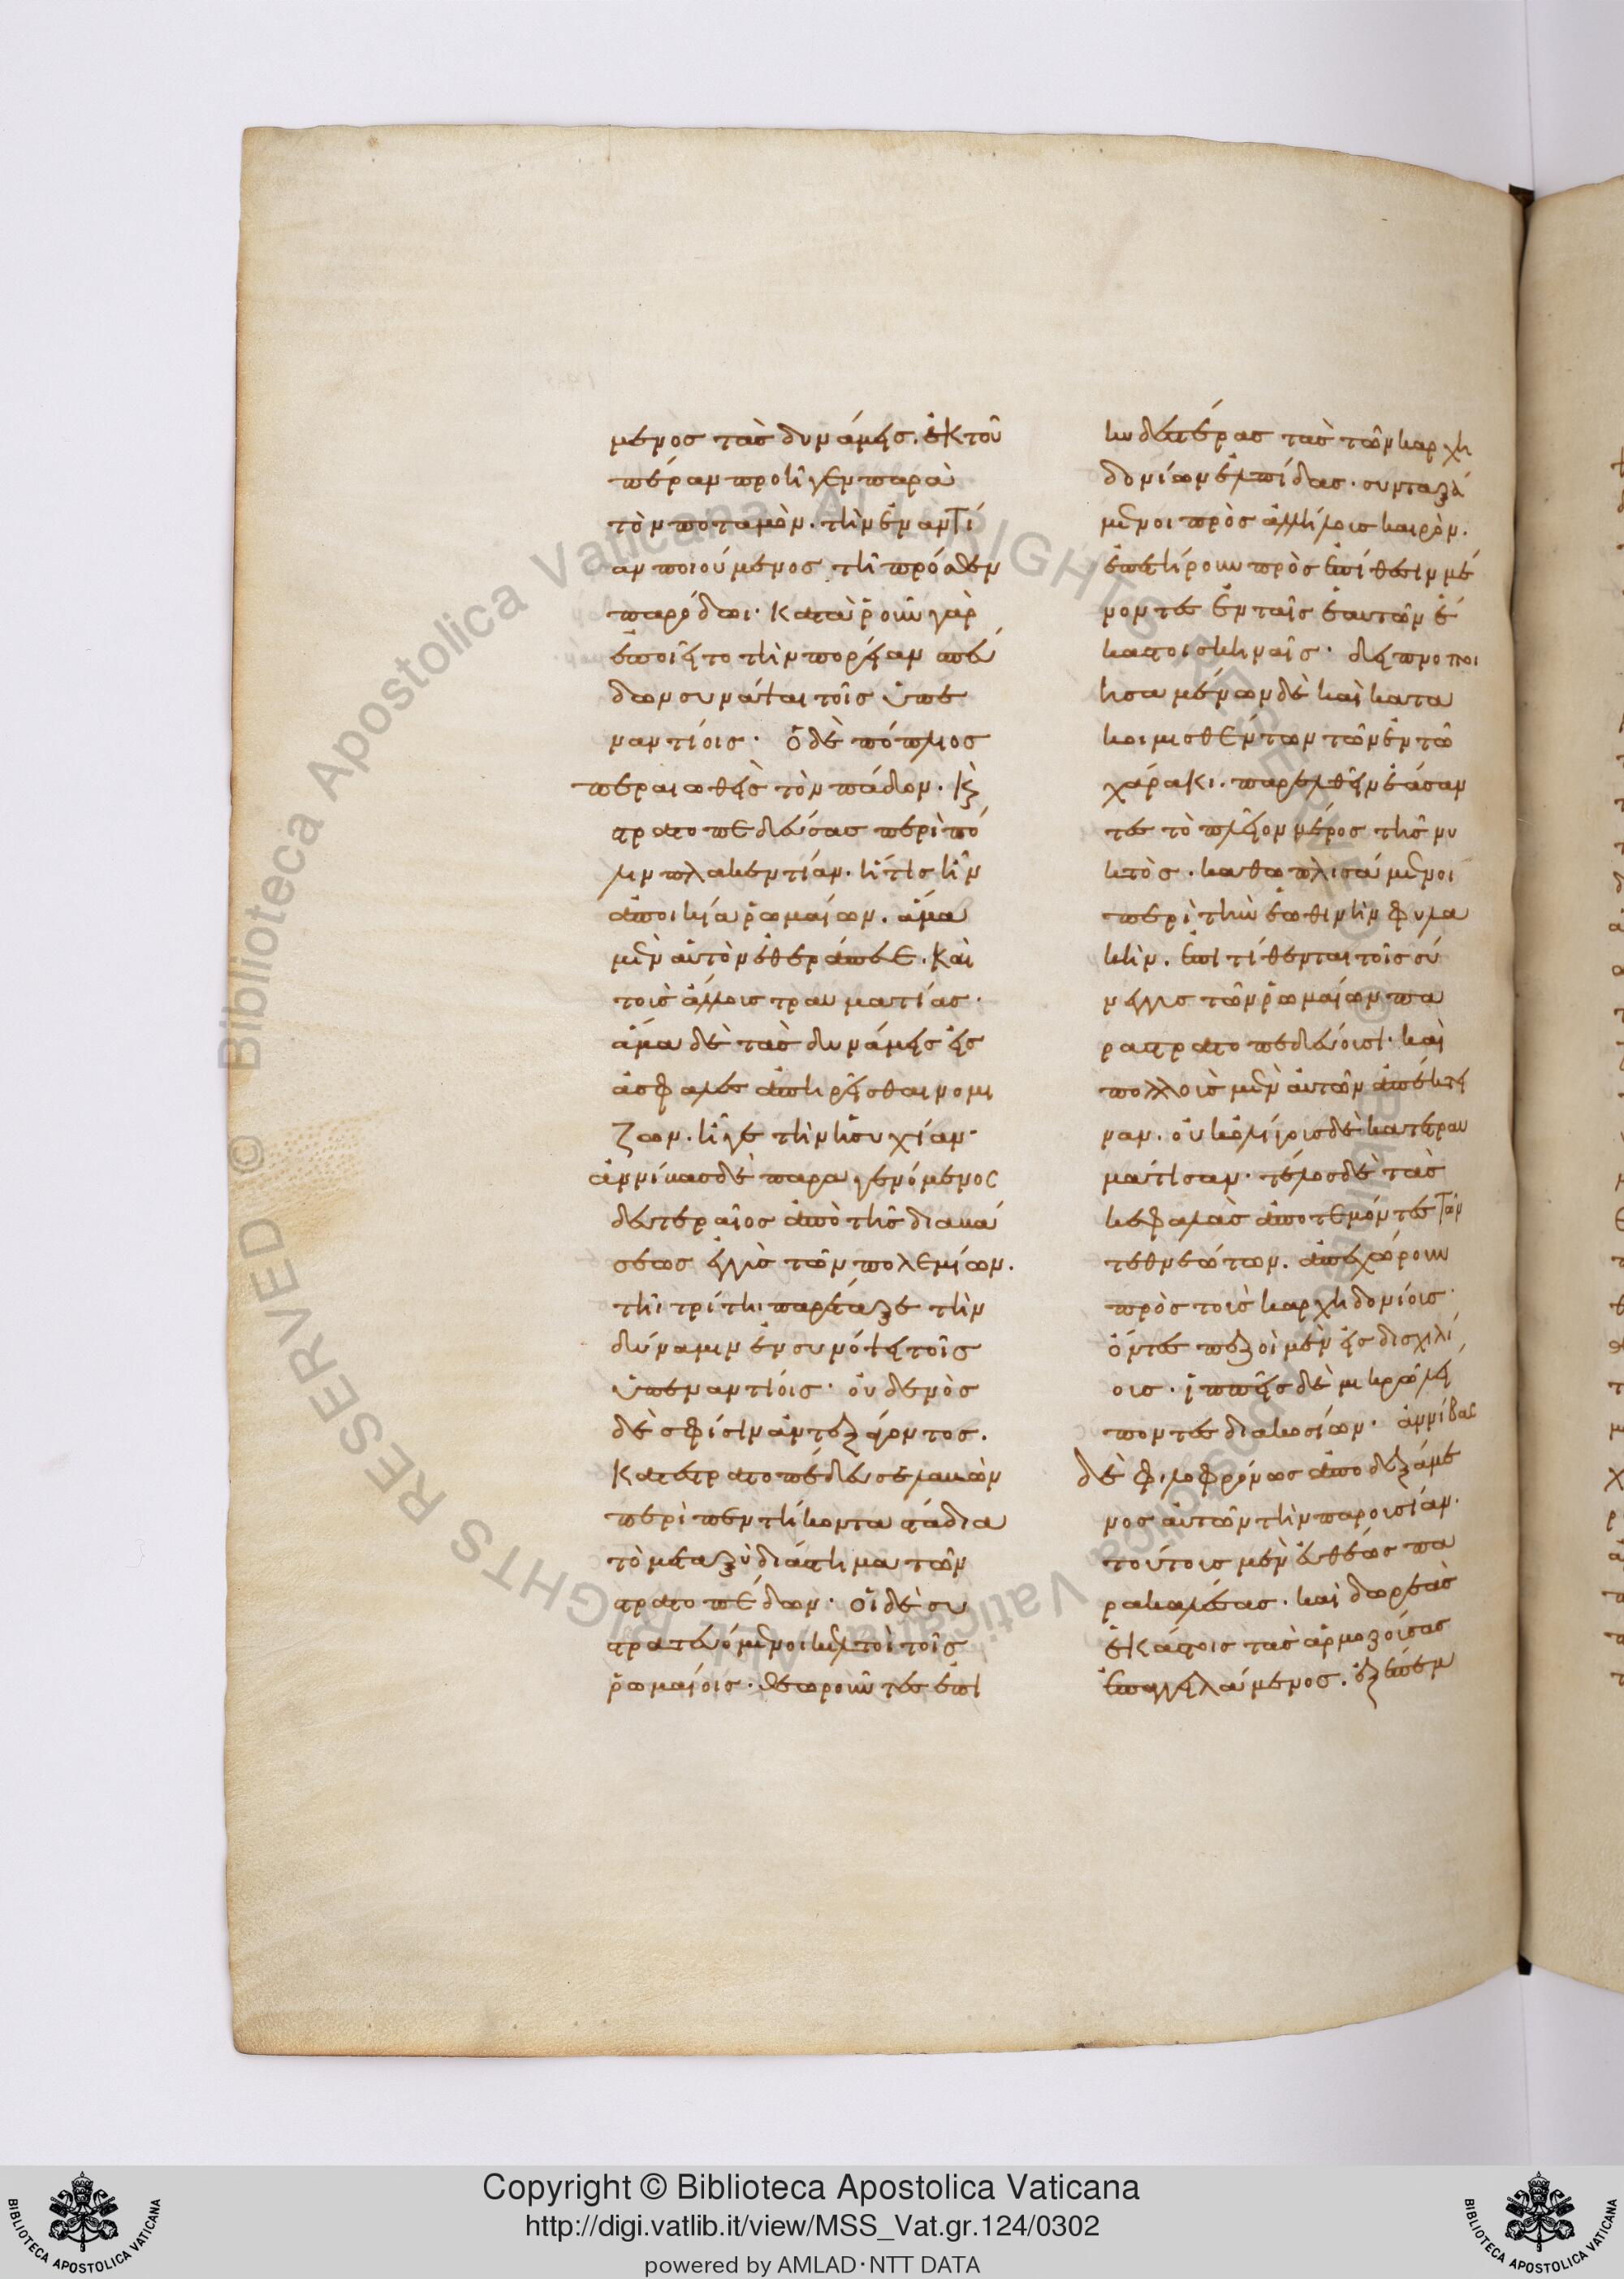 μενος τὰς δυνάμεις. ἐκ τοῦ
πέραν προῆγεν παρὰ
τὸν ποταμὸν. τὴν ἐναντί
αν ποιούμενος τῆ πρόσθεν
παρόδωι· κατὰ ῥοῦν γὰρ
ἐποιεῖτο τὴν πορείαν σπεύ
δων συνάψαι τοῖς ὑπε
ναντίοις· ὁ δὲ πόπλιος
περαιωθεὶς τὸν πάδον. κ
στρατοπεδεύσας περὶ πό
λιν πλακεντίαν. ἥτις ἦν
ἀποικία ῥωμαίων. ἅμα
μὲν αὑτὸν ἐθεράπευε. καὶ
τοὺς ἄλλους τραυματίας·
ἅμα δὲ τὰς δυνάμεις εἰς
ἀσφαλὲς ἀπηρεῖσθαι νομί
ζων. ἦγε τὴν ἡσυχίαν·
ἀννίβας δὲ παραγενόμενος
δευτεραῖος ἀπὸ τῆς διαβά
σεως ἐγγὺς τῶν πολεμίων.
τῆι τρίτηι παρέταξε τὴν
δύναμιν ἐν συνόψει τοῖς
ὑπεναντίοις· οὐδενὸς
δὲ σφίσιν ἀντεξάγοντος.
κατεστρατοπέδευσε λαβὼν
περὶ πεντήκοντα στάδια
τὸ μεταξὺ διάστημα τῶν
στρατοπέδων· οἱ δὲ συ
στρατευόμενοι κελτοὶ τοῖς
ῥωμαίοις. θεωροῦντες ἐπι
κυδεστέρας τὰς τῶν καρχη
δονίων ἐλπίδας· συνταξά
μενοι πρὸς ἀλλήλους καιρὸν.
ἐπετήρουν πρὸς ἐπίθεσιν μέ
νοντες ἐν ταῖς ἑαυτῶν ἕ
καστοι σκηναῖς· δειπνοποι
ησαμένων δὲ καὶ κατα
κοιμισθέντων τῶν ἐν τῶ
χάρακι. παρελθεῖν ἐάσαν
τες τὸ πλεῖον μέρος τῆς νυ
κτὸς. καθωπλισμένοι
περὶ τὴν ἑωθινὴν φυλα
κὴν. ἐπιτίθενται τοῖς σύ
νεγγυς τῶν ῥωμαίων πα
ραστρατοπεδεύουσι· καὶ
πολλοὺς μὲν αὐτῶν ἀπέκτει
ναν. οὐκ ὀλίγους δὲ κατετραυ
μάτισαν· τέλος δὲ τὰς
κεφαλὰς ἀποτεμόντες τῶν
τεθνεώτων. ἀπεχώρουν
πρὸς τοὺς καρχηδονίους·
ὄντες πεζοὶ μὲν εἰς δισχιλί
ους· ἱππεῖς δὲ μικρῶ λεί
ποντες διακοσίων· ἀννίβας
δὲ φιλοφρόνως ἀποδεξάμε
νος αὐτῶν τὴν παρουσίαν.
τούτους μὲν εὐθέως πα
ρακαλέσας. καὶ δωρεὰς
ἑκάστοις τὰς ἁρμοζούσας
ἐπαγγειλάμενος. ἐξέπεμ
Copyright © Biblioteca Apostolica Vaticana
http://digi.vatlib.it/view/MSS_Vat.gr.124/0302
powered by AMLAD·NTT DATA